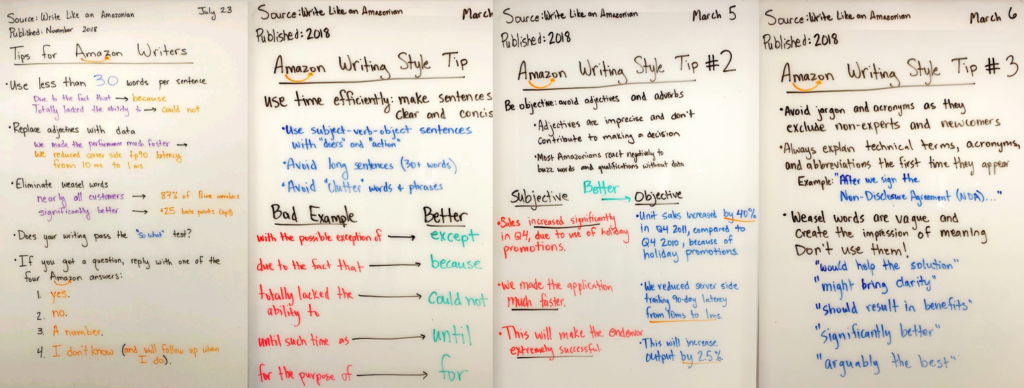 Source: Write Like an Amazonian July 23
Published: November 2018
Tips for Amazon Writers
• Use less than 30 words per sentence
Due to the fact that → because
Totally lacked the ability to → could not
• Replace adjectives with data
We made the performance much faster →
We reduced server side tp90 latency
from 10 ms to 1 ms
• Eliminate weasel words
nearly all customers → 87% of Prime members
significantly better → +25 basis points
• Does your writing pass the "So what" test?
• If you get a question, reply with one of the
four Amazon answers:
1. yes.
2. no.
3. A number.
4. I don't know (and will follow up when
I do).
Source: Write Like an Amazonian March
Published: 2018
Amazon Writing Style Tip
Use time efficiently: make sentences
clear and concis
• Use subject-verb-object sentences
with "doers" and "action"
• Avoid long sentences (30+ words)
• Avoid "clutter" words & phrases
Bad Example Better
with the possible exception of → except
due to the fact that → because
totally lacked the
ability to → could not
until such time as → until
for the purpose of → for
Source: Write Like an Amazonian March 5
Published: 2018
Amazon Writing Style Tip #2
Be objective: avoid adjectives and adverbs
• Adjectives are imprecise and don't
contribute to making a decision
• Most Amazonians react negatively to
buzz words and qualifications without data
Subjective Better Objective
• Sales increased significantly
in Q4, due to use of holiday
promotions.
• Unit sales increased by 40%
in Q4 2011, compared to
Q4 2010, because of
holiday promotions.
• We made the application
much faster.
• We reduced server side
trailing 90-day latency
from 10ms to 1ms.
• This will make the endeavor
extremely successful.
• This will increase
output by 25%
Source: Write Like an Amazonian March 6
Published: 2018
Amazon Writing Style Tip #3
• Avoid jargon and acronyms as they
exclude non-experts and newcomers
• Always explain technical terms, acronyms,
and abbreviations the first time they appear
Example: "After we sign the
Non-Disclosure Agreement (NDA)...."
• Weasel words are vague and
create the impression of meaning
Don't use them!
"would help the solution"
"might bring clarity"
"should result in benefits"
"significantly better"
"arguably the best"